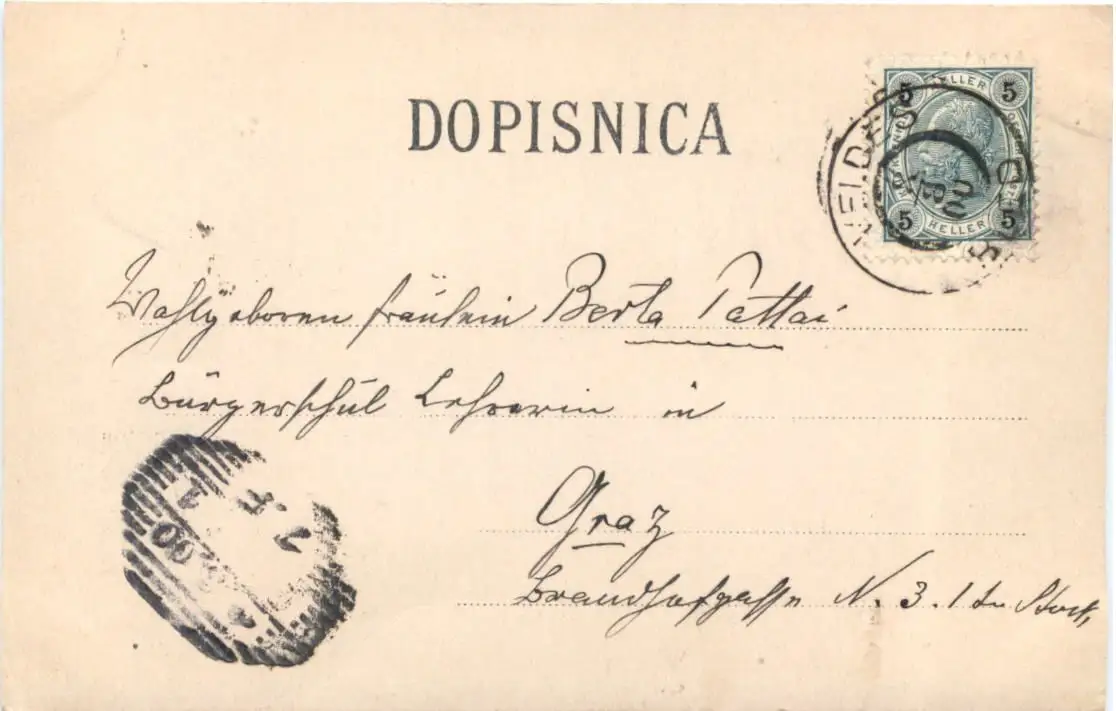 DOPISNICA
5 HELLER 5
VELDES
00
5 HELLER 5
BLED
Wohlgeboren Fräulein Berta Pattai
Bürgerschul Lehrerin in
Graz
Brandhofgasse N. 3. 1ter Stock,
00